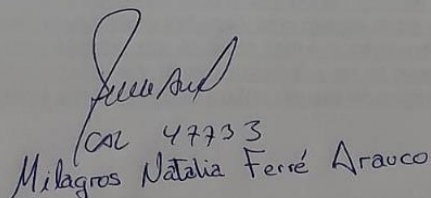 CAL 47733
Milagros Natalia Ferré Arauco